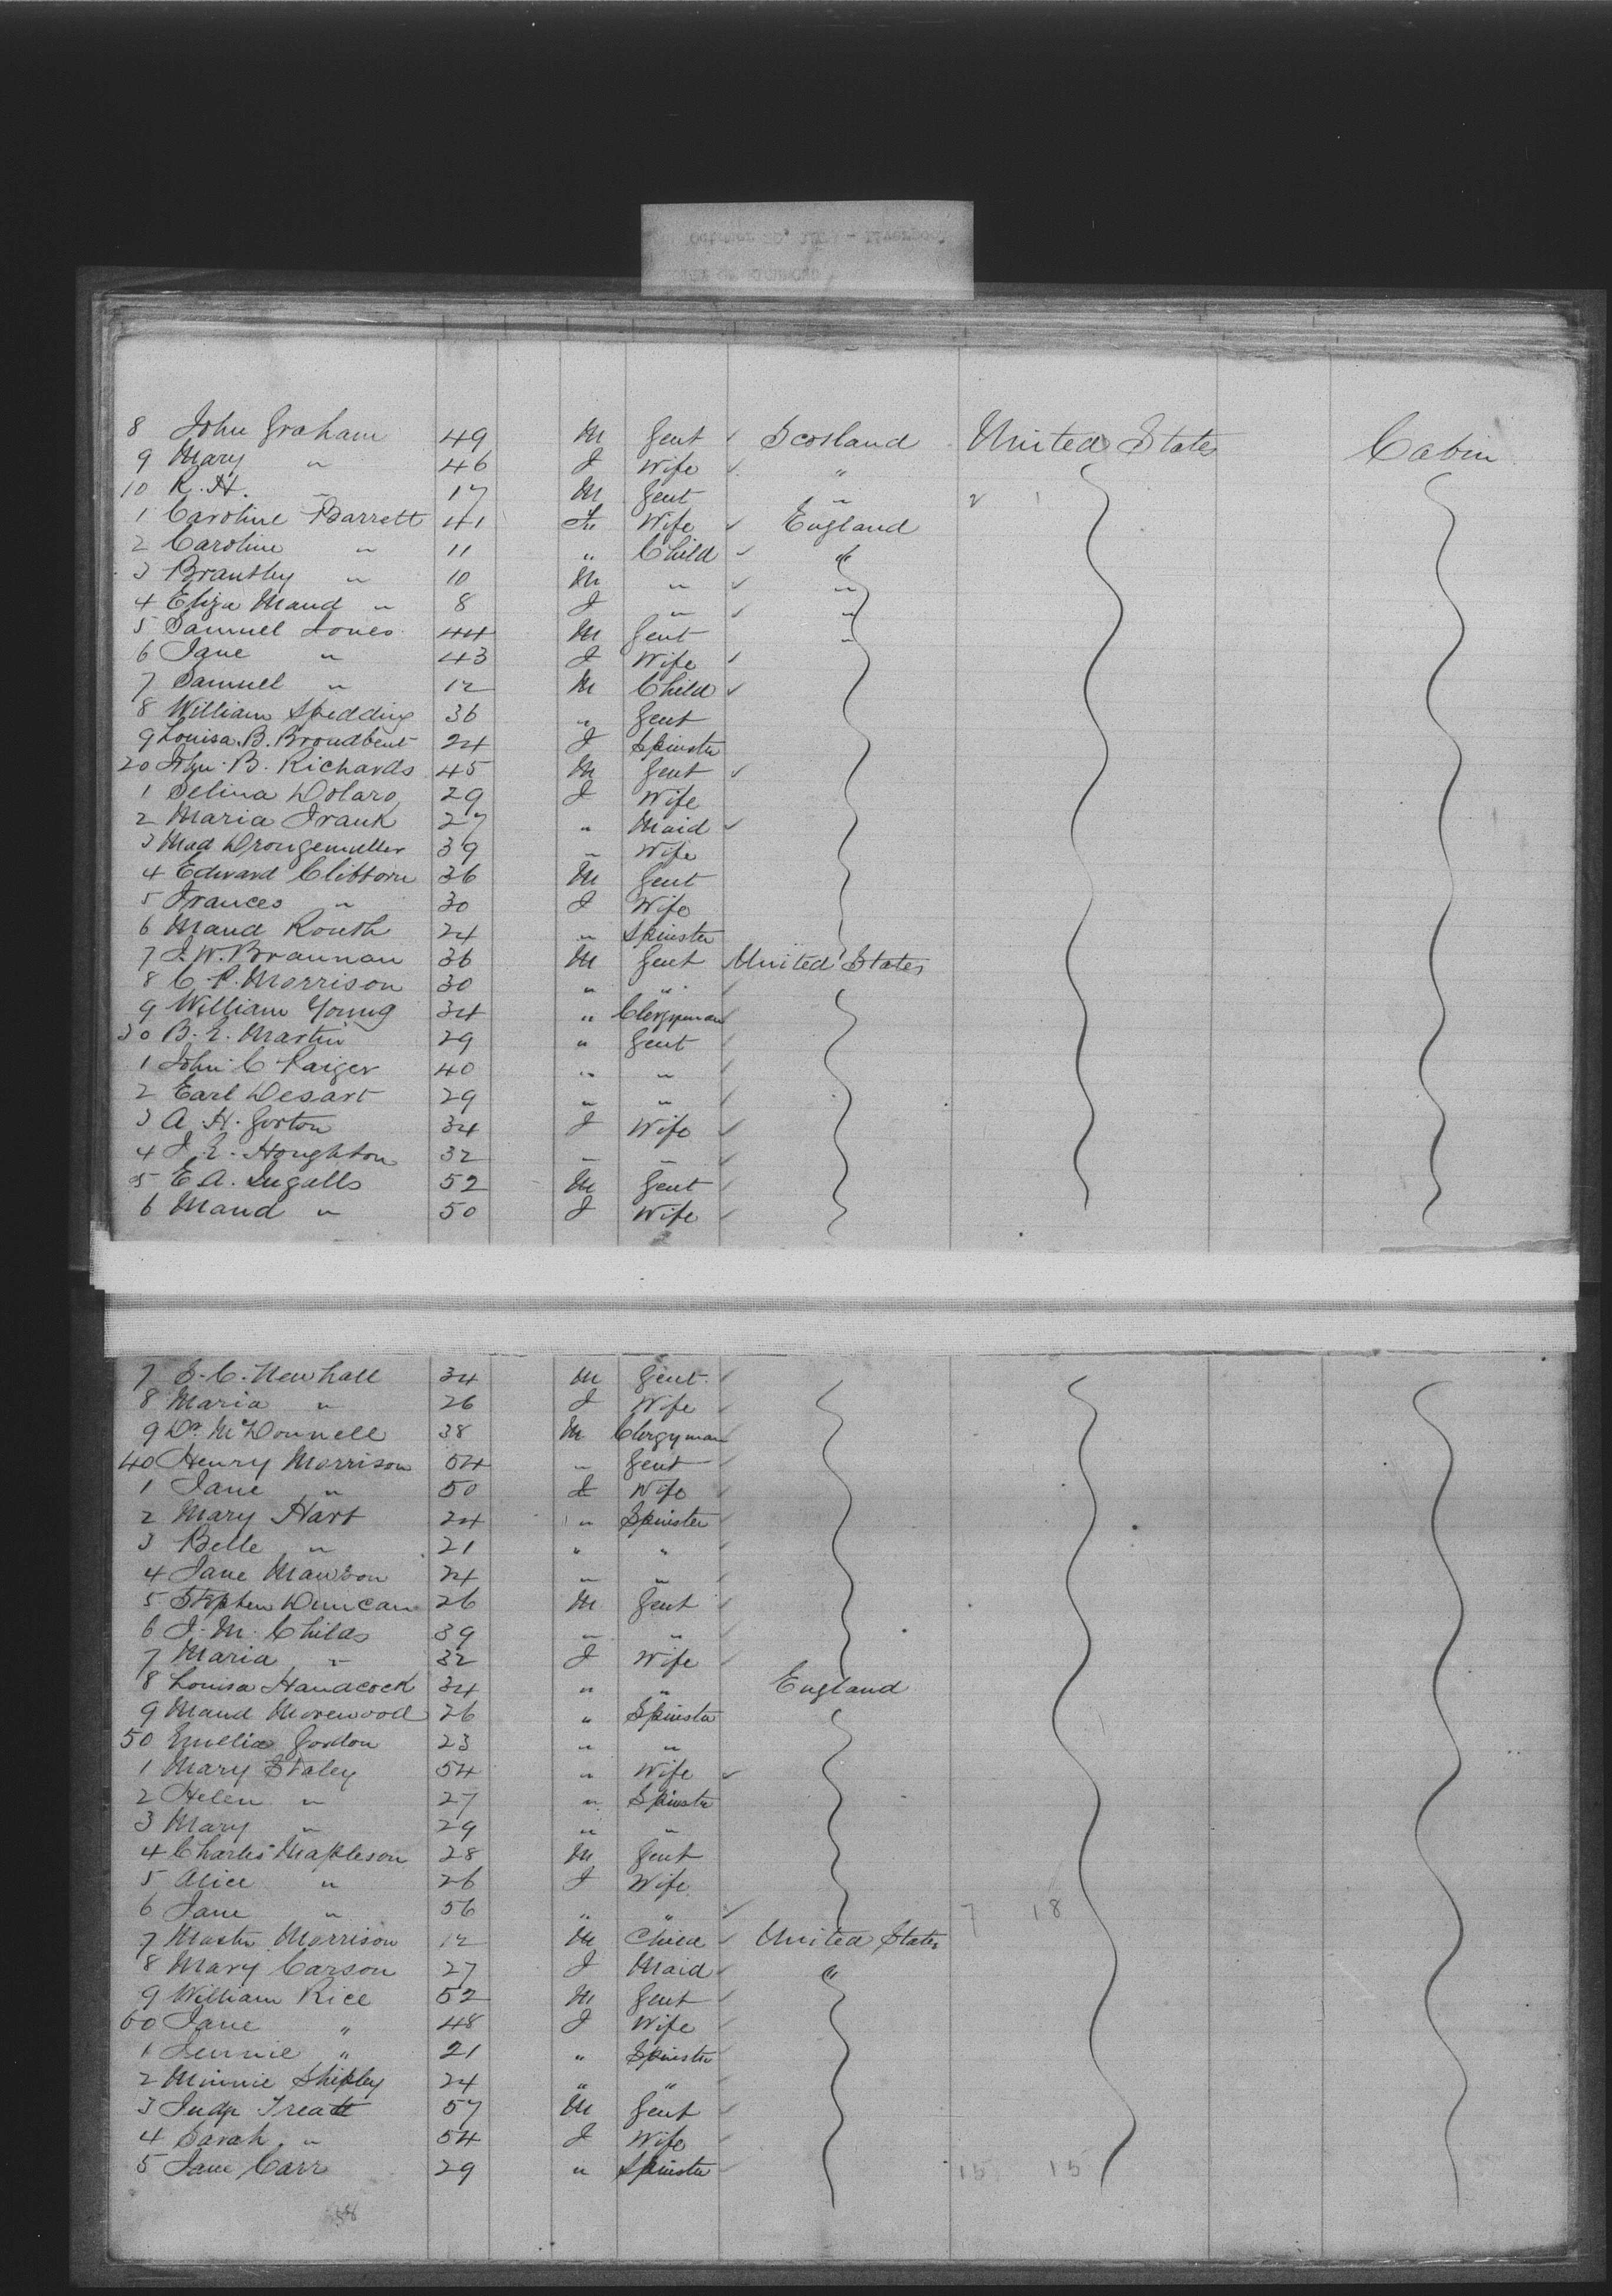 8 John Graham 49 M Gent ✓ Scotland United States Cabin
9 Mary " 46 F Wife ✓ "
10 R. H. " 17 M Gent "
1 Caroline Barrett 41 F Wife ✓ England
2 Caroline " 11 " Child ✓ "
3 Brantley " 10 M " ✓ "
4 Eliza Maud " 8 F " ✓ "
5 Samuel Jones 44 M Gent "
6 Jane " 43 F Wife ✓
7 Samuel " 12 M Child ✓
8 William Spedding 36 " Gent
9 Louisa B. Broadbent 24 F Spinster
20 Jno. B. Richards 45 M Gent ✓
1 Selina Dolaro 29 F Wife
2 Maria Frank 27 " Maid ✓
3 Mad Drongemuller 39 " Wife
4 Edward Clibborn 36 M Gent
5 Frances " 30 F Wife
6 Maud Routh 24 " Spinster
7 J. W. Brannan 36 M Gent United States
8 C. P. Morrison 30 " " ✓
9 William Young 34 " Clergyman ✓
30 B. E. Martin 29 " Gent ✓
1 John C Paiger 40 " " ✓
2 Earl Desart 29 " " ✓
3 A. H. Gorton 34 F Wife ✓
4 J. E. Houghton 32 " " ✓
5 E. A. Ingalls 52 M Gent ✓
6 Maud " 50 F Wife ✓
7 J. C. Newhall 34 M Gent ✓
8 Maria " 26 F Wife ✓
9 Dr McDonnell 38 M Clergyman
40 Henry Morrison 54 " Gent ✓
1 Jane " 50 F Wife ✓
2 Mary Hart 24 " Spinster ✓
3 Belle " 21 " " ✓
4 Jane Mawson 24 " " ✓
5 Stephen Duncan 26 M Gent ✓
6 J. M. Childs 39 " " ✓
7 Maria " 32 F Wife ✓
8 Louisa Handcock 34 " " England
9 Maud Morewood 26 " Spinster
50 Emelia Gordon 23 " "
1 Mary Staley 54 " Wife ✓
2 Helen " 27 " Spinster
3 Mary " 29 " "
4 Charles Mapleson 28 M Gent
5 Alice " 26 F Wife
6 Jane " 56 " " ✓ 7 18
7 Master Morrison 12 M Child ✓ United States
8 Mary Carson 27 F Maid ✓ "
9 William Rice 52 M Gent ✓
60 Jane " 48 F Wife ✓
1 Jennie " 21 " Spinster ✓
2 Minnie Shipley 24 " " ✓
3 Judge Treat 57 M Gent ✓
4 Sarah " 54 F Wife ✓
5 Jane Carr 29 " Spinster ✓ 15 15